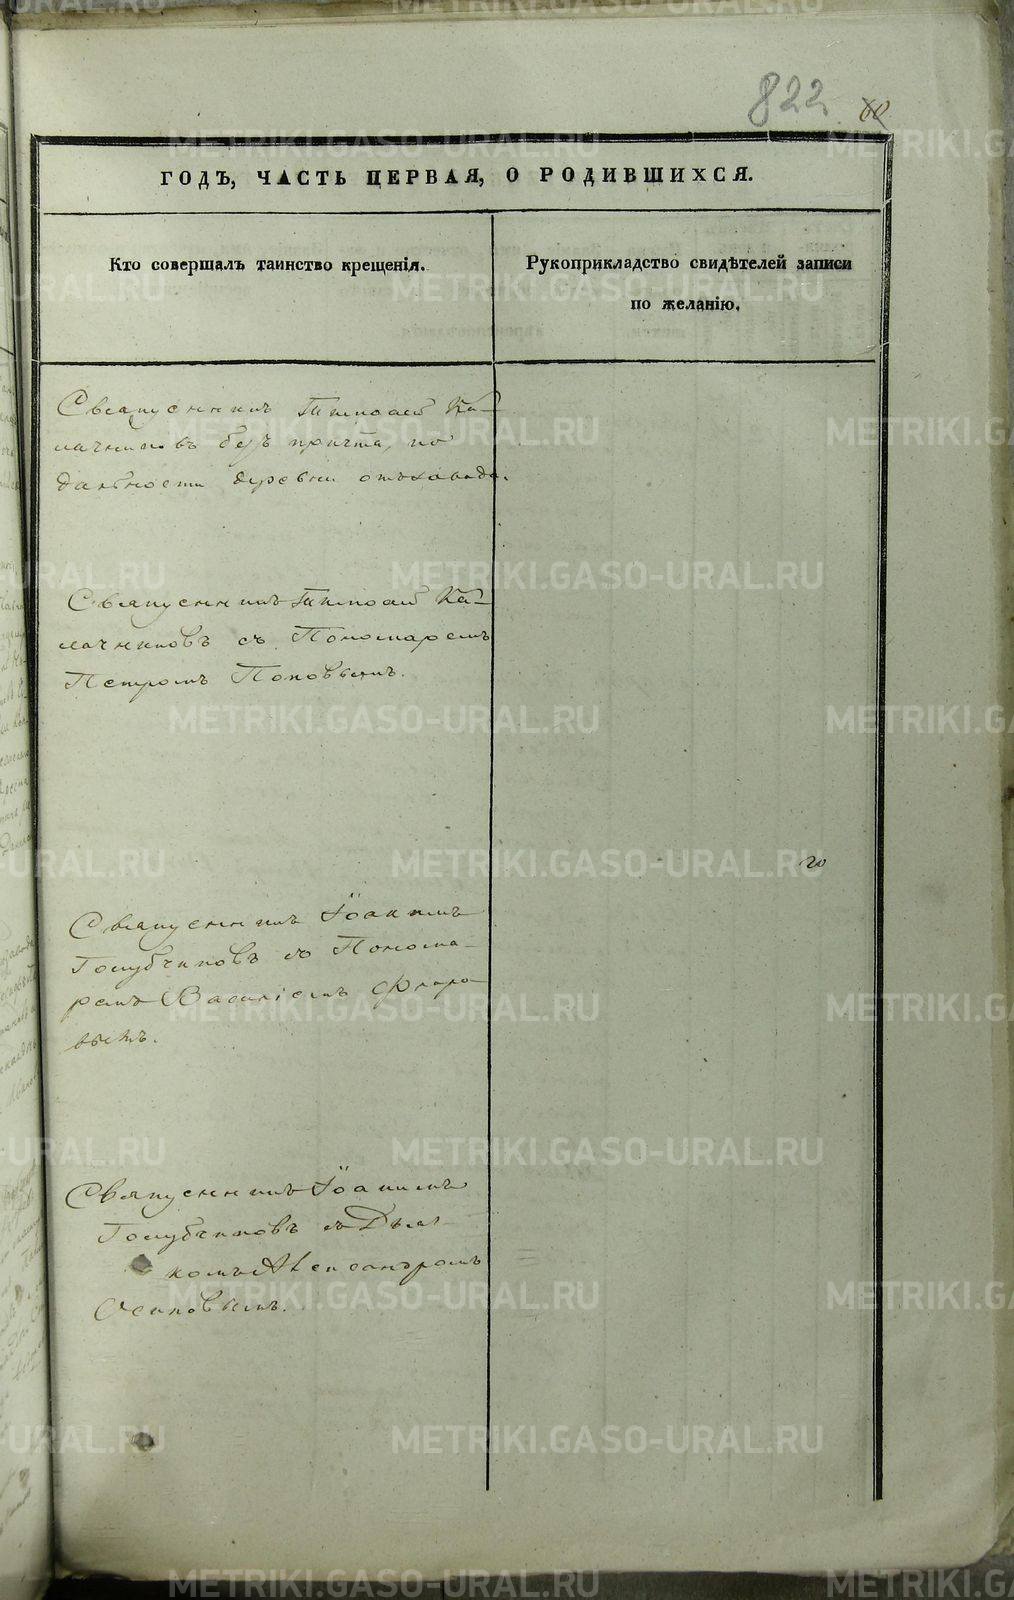 822 60
ГОДЪ, ЧАСТЬ ПЕРВАЯ, О РОДИВШИХСЯ.
Кто совершалъ таинство крещенія.
Рукоприкладство свидѣтелей записи
по желанію.
Священникъ Тимоѳей Ка-
лачниковъ безъ причта, по
дальности деревни
Священникъ Тимоѳей Ка-
лачниковъ съ Пономаремъ
Петромъ Поповымъ.
Священникъ Іоакимъ
Голубчиковъ съ Понома-
ремъ Василіемъ Флоро-
вымъ.
20
Священникъ Іоакимъ
Голубчиковъ съ Дьяч-
комъ Александромъ
Осиповымъ.
METRIKI.GASO-URAL.RU